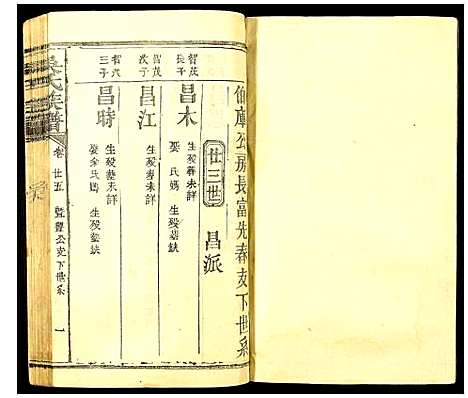 伯庫公房長富先春支下世系
廿三世 昌派
智茂長子
昌木
生殁葬未詳
娶氏媽 生殁葬缺
智茂次子
昌江
生殁葬未詳
智茂三子
昌時
生殁葬未詳
娶余氏媽 生殁葬缺
氏族譜
卷廿五
公支下世系
一